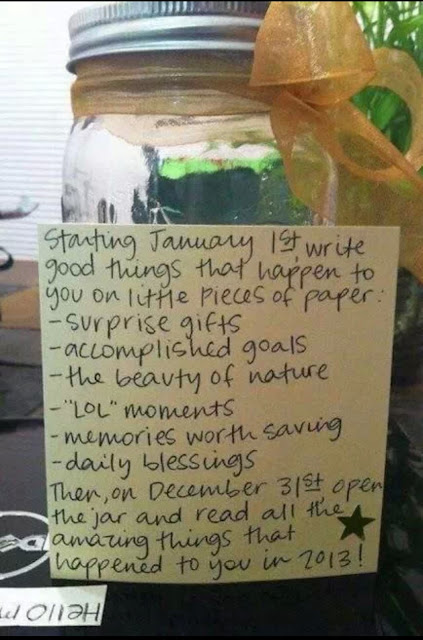 Starting January 1st, write
good things that happen to
you on little pieces of paper:
-surprise gifts
-accomplished goals
-the beauty of nature
-"LOL" moments
-memories worth saving
-daily blessings
Then, on December 31st, open
the jar and read all the
amazing things that
happened to you in 2013!
Hello